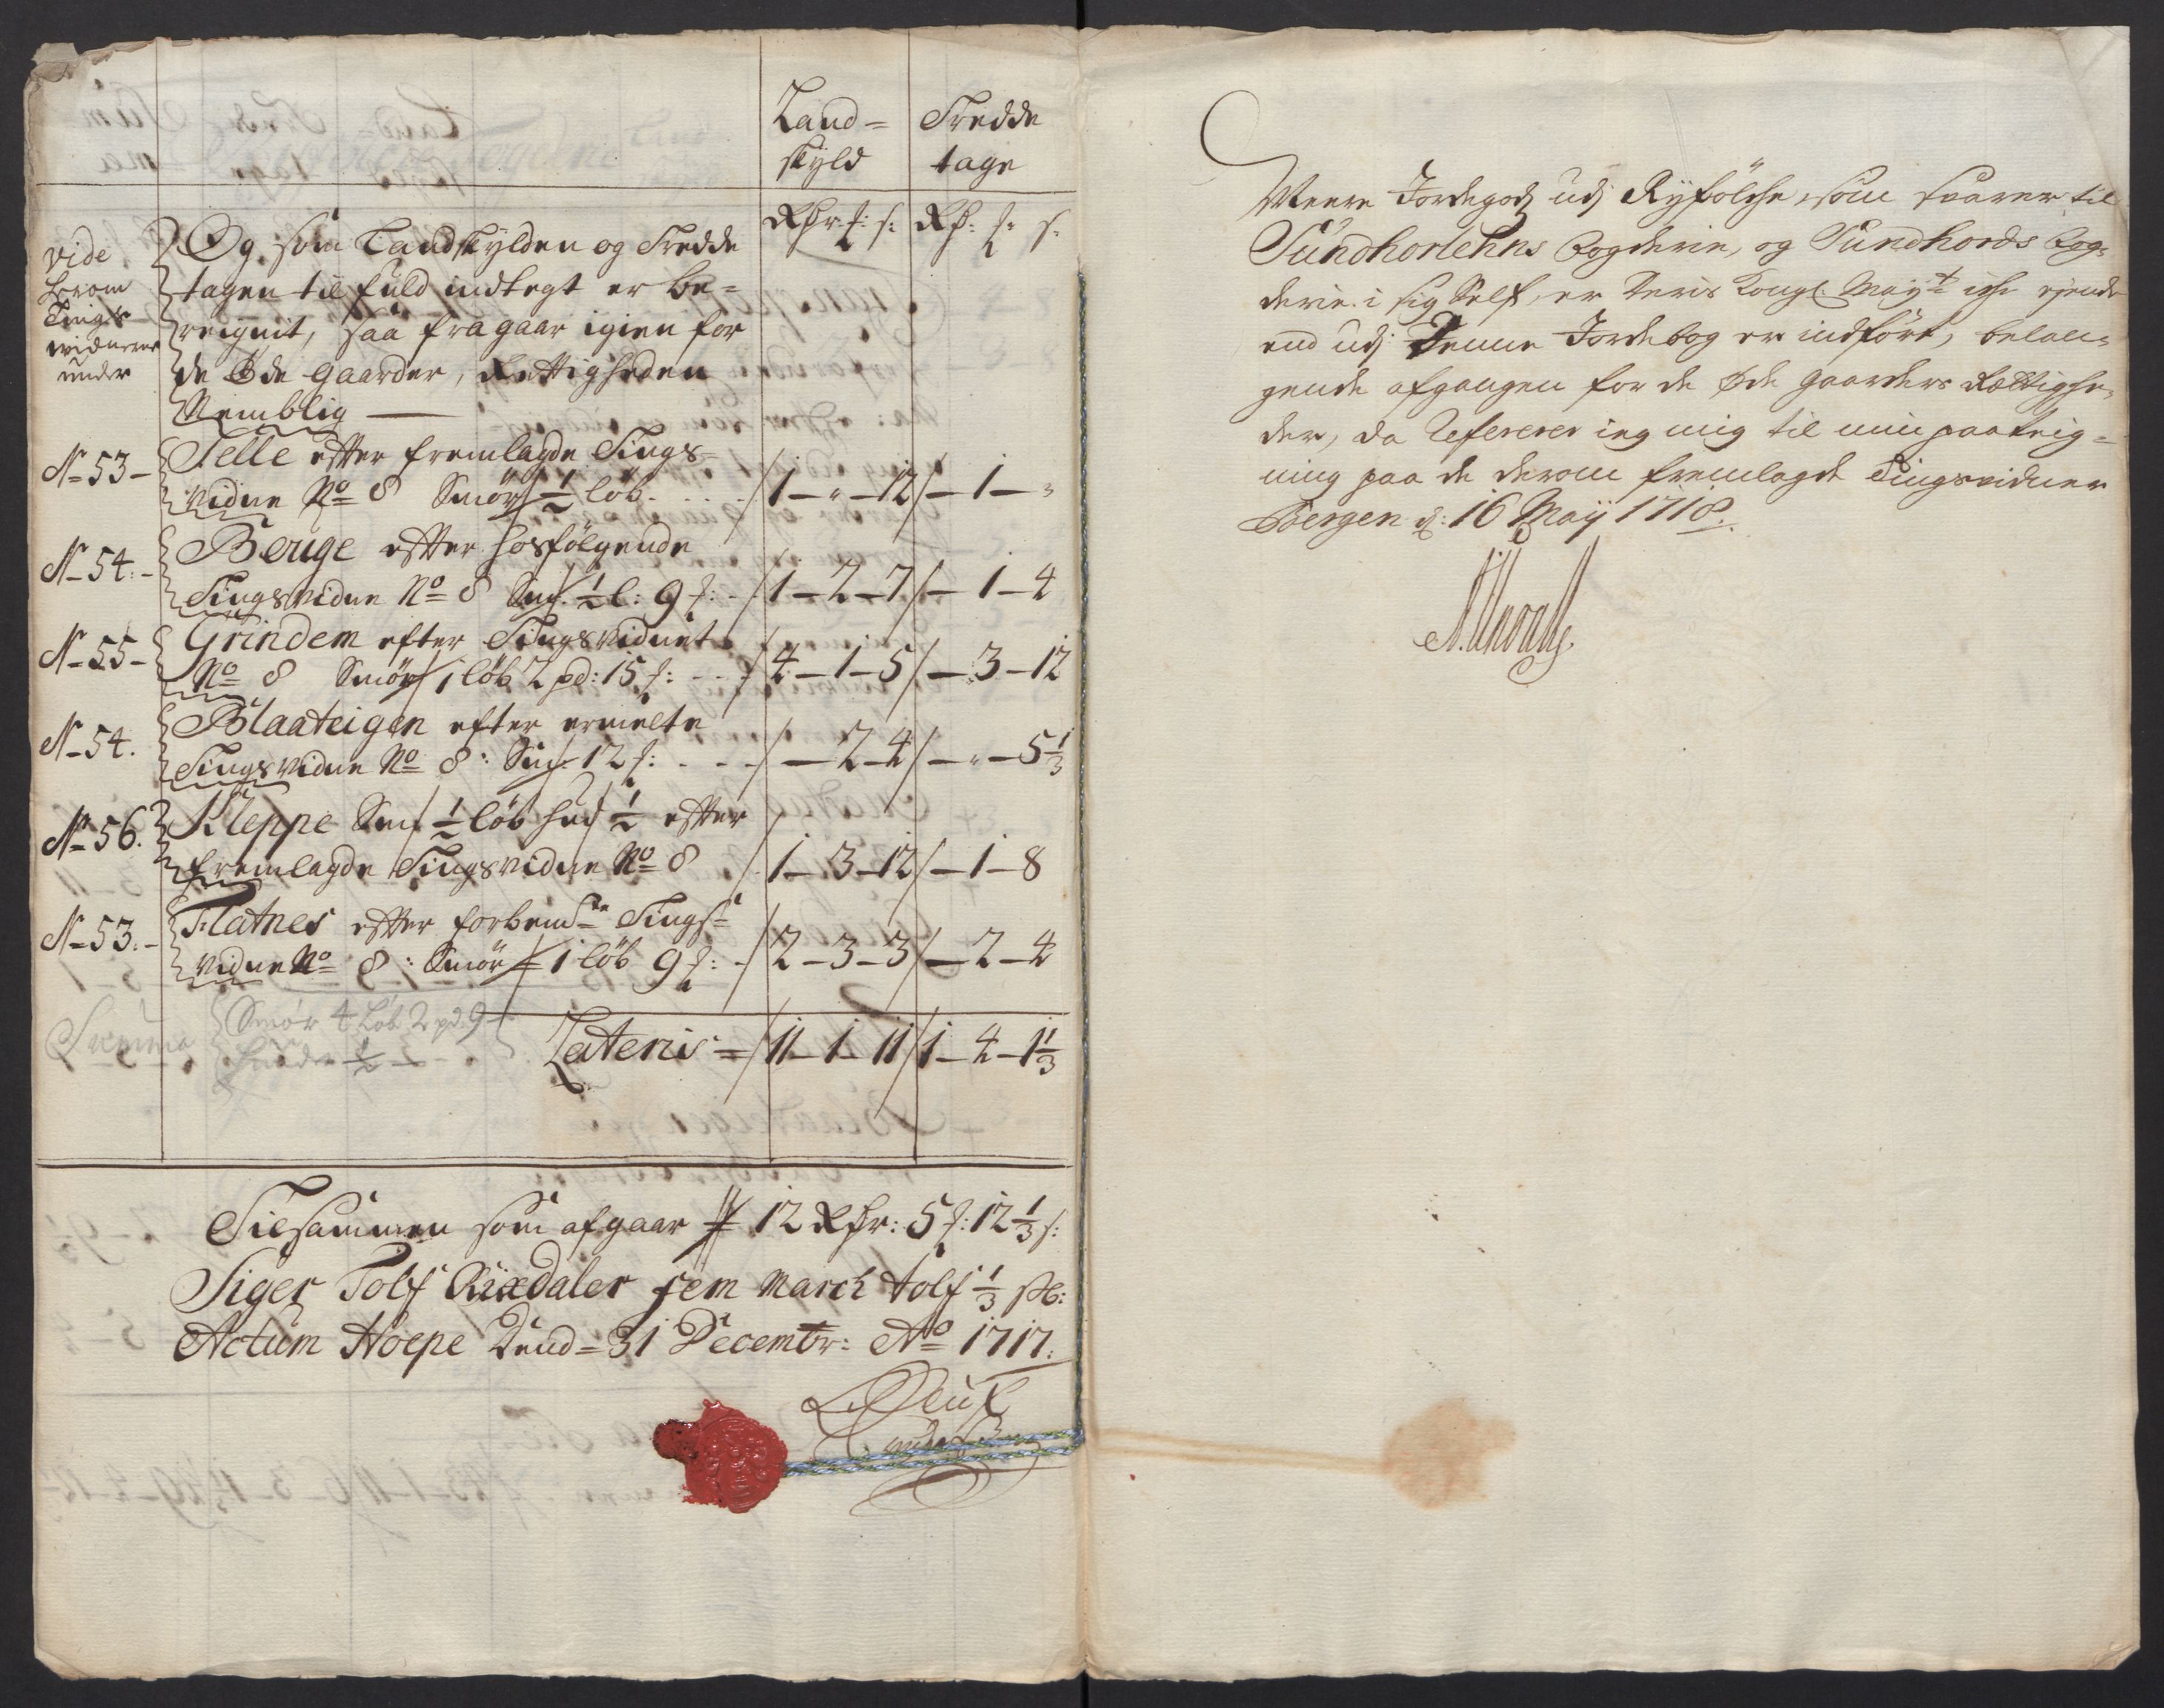 Land= Tredde
skyld tage
Rdr: ƒ: s: Rd: ƒ: s:
vide
herom
Tings
widnerne
under
Og som Landskylden og Tredde
tagen til fuld indtegt er be=
reignit, saa fragaar igien for
de Øde gaarder, Rettigheden
Nemblig
N=53- Telle efter fremlagde Tings=
vidne No 8 Smør ½ løb 1 - " - 12 - 1 - "
N-54:- Berge efter hosfølgende
Tingsvidne No 8 Sm: ½ l: 9 ƒ: 1-2-7 - 1-4
N-55- Grindem efter Tingsvidnet
No 8 Smør 1 løb 2 pd: 15 ƒ: 4-1-5 - 3-12
N-54. Blaateigen efter ermelte
Tingsvidne No 8: Sm: 12 ƒ: -2-4 - " - 5 1/3
N-56. Kleppe Sm: ½ løb hud ½ efter
fremlagde Tingsvidne No 8 1-3-12 - 1-8
N-53:- Flatnes efter forbemte Tings=
vidne No 8: Smør 1 løb 9 ƒ: 2-3-3 - 2-4
Summa Smør 4 Løb 2 pd 9
huder ½
Lateris = 11-1-11 1-4-1 1/3
Tilsammen som afgaar 12 Rdr: 5 ƒ: 12 1/3 s:
Siger Tolf Rixdaler fem March tolf 1/3 sk:
Actum Hoepe Dend=31 Decembr: Ao 1717:
Meere Jordegods udj Ryfölche, som svarer til
Sundhorlehns fogderie, og Sundhords fog=
derie i sig Self, er Deris Kongl: Mayt iche ejende
end udj Denne Jordebog er indført, belan=
gende afgangen for de øde gaarders Rættighe=
der, da Refererer ieg mig til min paateig=
ning paa de derom fremlagde Tingsvidner
Bergen d: 16 Maÿ 1718.